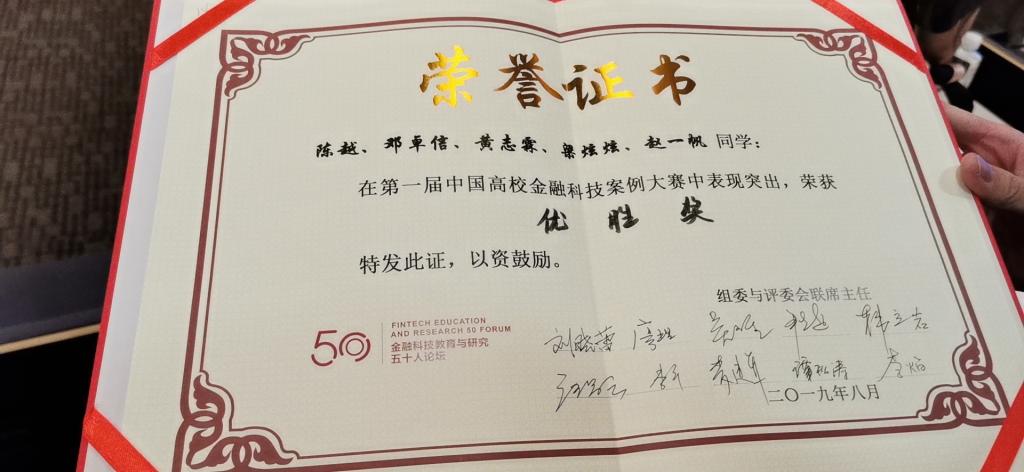 荣誉证书
陈越、邓卓信、黄志霖、梁炫炫、赵一帆 同学：
在第一届中国高校金融科技案例大赛中表现突出，荣获
优胜奖
特发此证，以资鼓励。
组委与评委会联席主任
50
FINTECH EDUCATION
AND RESEARCH 50 FORUM
金融科技教育与研究
五十人论坛
刘晓蕾
二〇一九年八月